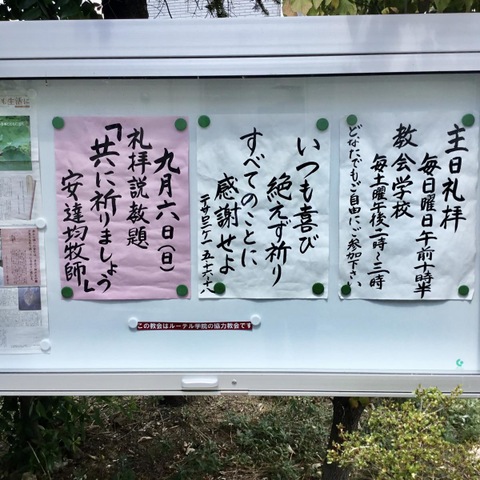 主日礼拝
毎日曜日午前十時半
教会学校
毎土曜午後二時～三時
どなたでもご自由にご参加下さい
いつも喜び
絶えず祈り
すべてのことに
感謝せよ
五・十六～十八
九月六日(日)
礼拝説教題
「共に祈りましょう」
安達均牧師
この教会はルーテル学院の協力教会です